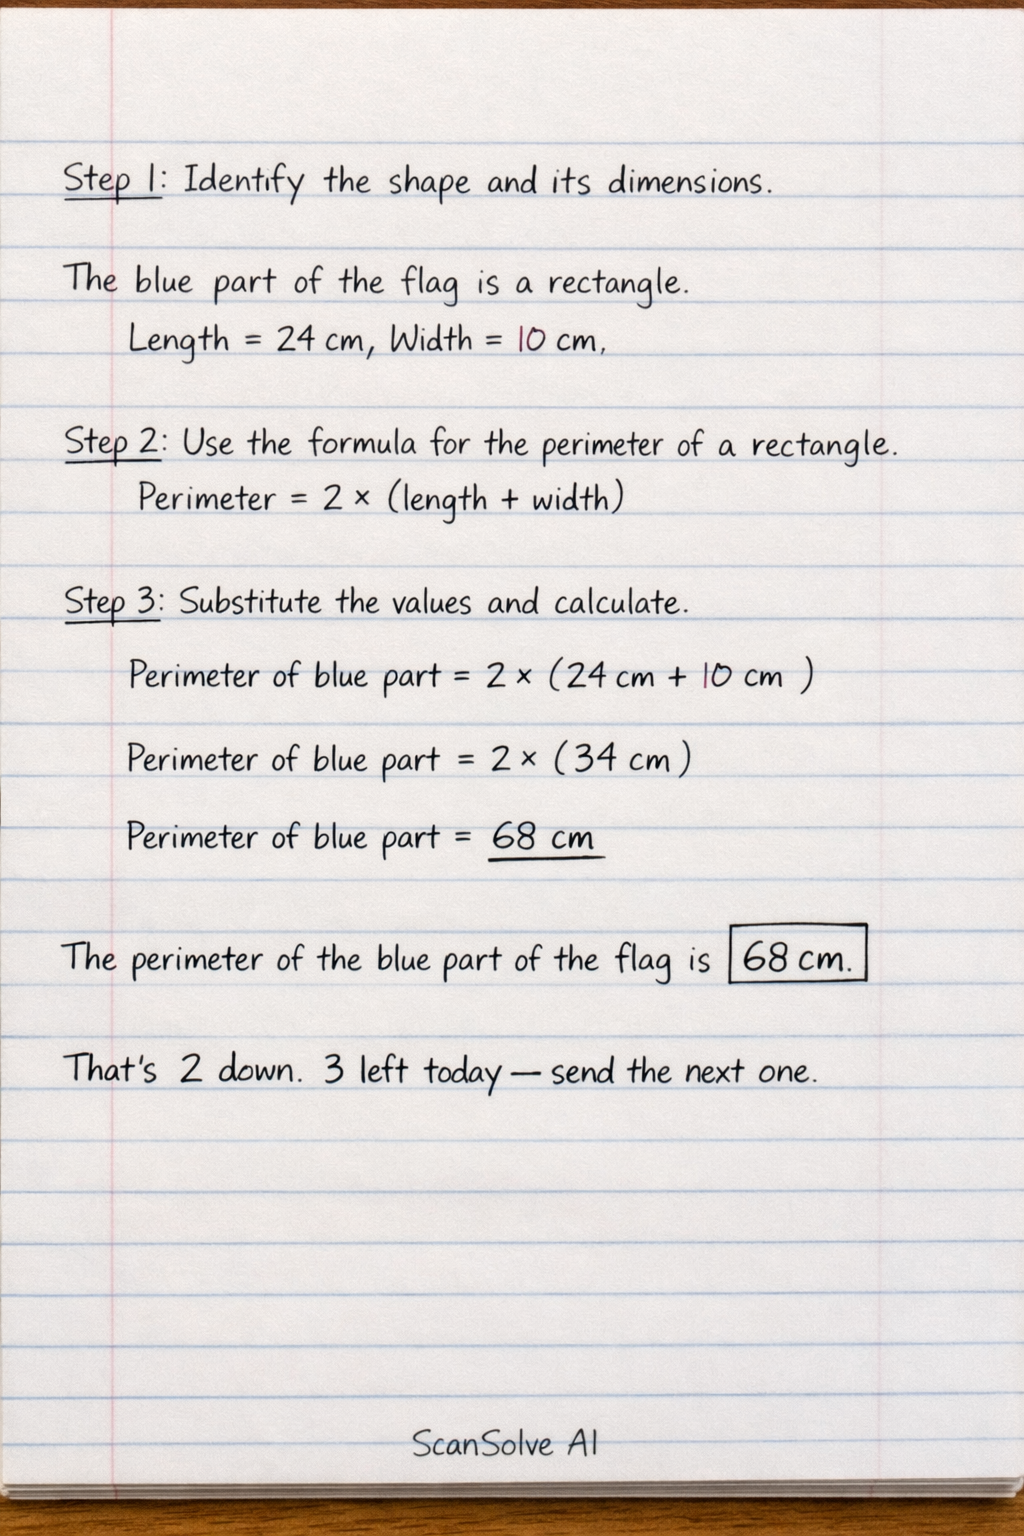 Step 1: Identify the shape and its dimensions.
The blue part of the flag is a rectangle.
Length = 24 cm, Width = 10 cm,
Step 2: Use the formula for the perimeter of a rectangle.
Perimeter = 2 × (length + width)
Step 3: Substitute the values and calculate.
Perimeter of blue part = 2 × (24 cm + 10 cm )
Perimeter of blue part = 2 × (34 cm )
Perimeter of blue part = 68 cm
The perimeter of the blue part of the flag is 68 cm.
That's 2 down. 3 left today — send the next one.
ScanSolve AI